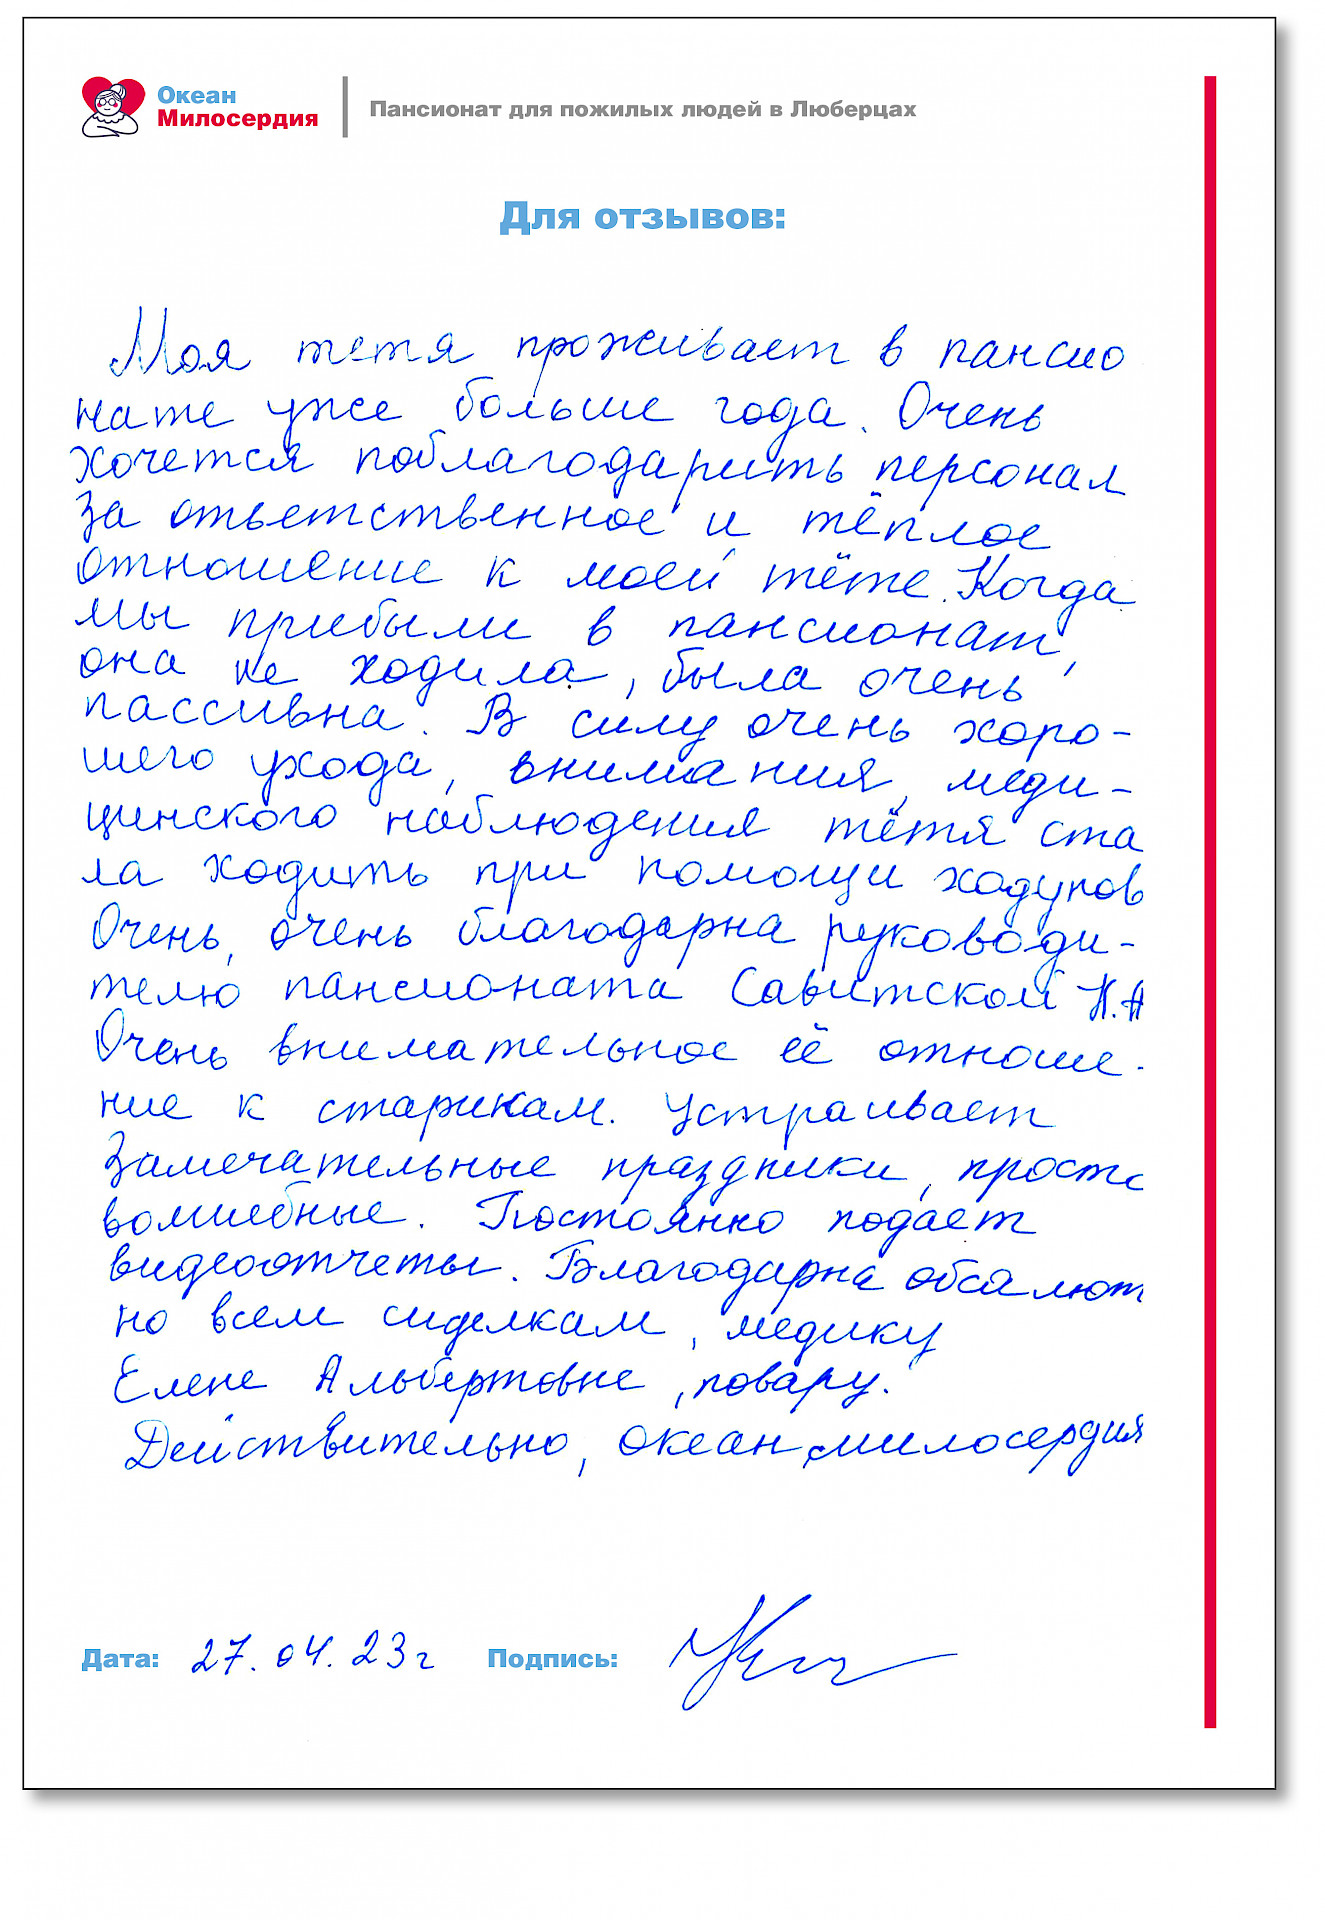 Океан
Милосердия
Пансионат для пожилых людей в Люберцах
Для отзывов:
Моя тетя проживает в пансио
нате уже больше года. Очень
хочется поблагодарить персонал
за ответственное и тёплое
отношение к моей тёте. Когда
мы прибыли в пансионат,
она не ходила, была очень
пассивна. В силу очень хоро-
шего ухода, внимания, меди-
цинского наблюдения тётя ста
ла ходить при помощи ходунов
Очень, очень благодарна руководи-
телю пансионата Савитской Н.А
Очень внимательное её отноше-
ние к старикам. Устраивает
замечательные праздники, просто
волшебные. Постоянно подает
видеоотчеты. Благодарна обсалют
но всем сиделкам, медику
Елене Альбертовне, повару.
Действительно, океан милосердия
Дата: 27.04.23г Подпись: